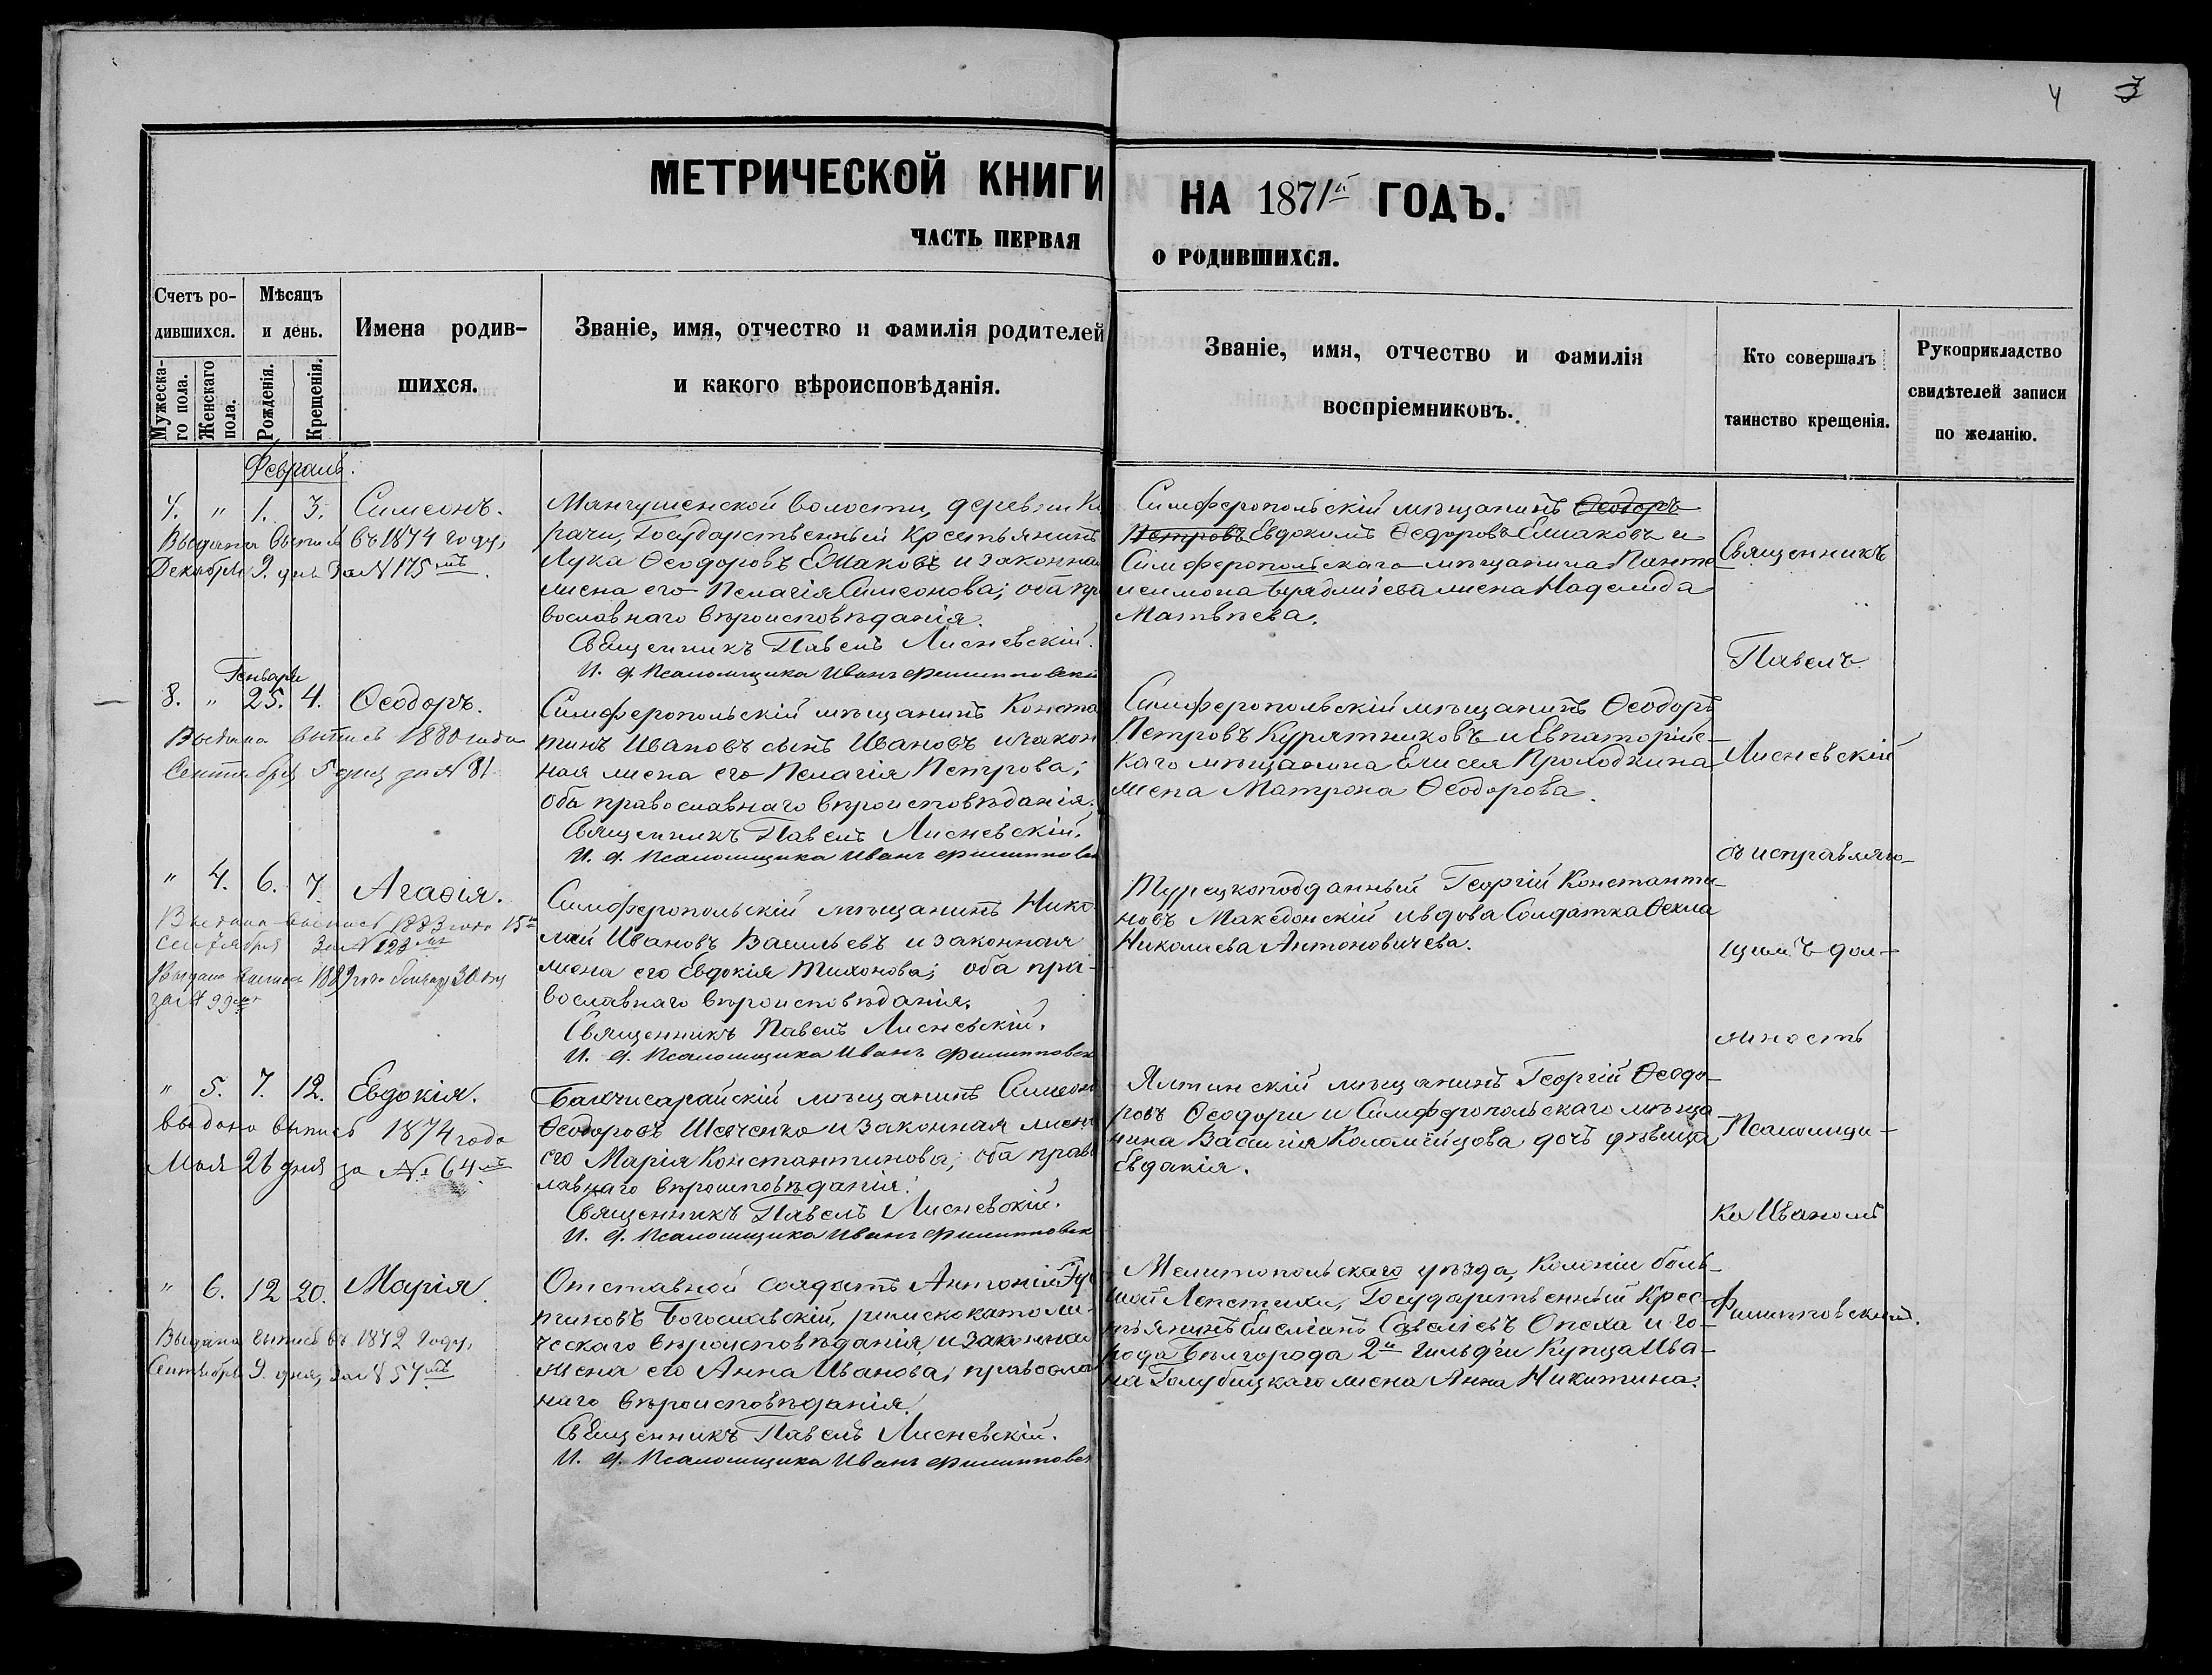 4 3
МЕТРИЧЕСКОЙ КНИГИ НА 1871й ГОДЪ.
ЧАСТЬ ПЕРВАЯ О РОДИВШИХСЯ.
Счетъ родившихся.
Мужескаго пола.
Женскаго пола.
Мѣсяцъ и день.
Рожденія.
Крещенія.
Имена родившихся.
Званіе, имя, отчество и фамилія родителей
и какого вѣроисповѣданія.
Званіе, имя, отчество и фамилія
воспріемниковъ.
Кто совершалъ
таинство крещенія.
Рукоприкладство
свидѣтелей записи
по желанію.
Февраль.
4. " 1. 3. Симеонъ.
Выдана выпись въ 1874 году,
Декабря 9. дня за № 175мъ.
Мангушенской волости, деревни
рачи, Государственный Крестьянинъ
Лука Ѳеодоровъ Ельаковъ и законная
жена его Пелагія Симеонова; оба пра
вославнаго вѣроисповѣданія.
Священникъ Павелъ Лисневскій.
И. д. Псаломщика Иванъ Филипповскій
Симферопольскій мѣщанинъ Ѳеодоръ
Петровъ Евдокимъ Ѳеодоровъ и
Симферопольскаго мѣщанина
жена Надежда
Матвѣева.
Генварь
8. " 25. 4. Ѳеодоръ.
Выдана выпись 1880 года
Сентября 5 дня за № 81
Симферопольскій мѣщанинъ Конста
тинъ Ивановъ сынъ Ивановъ и закон
ная жена его Пелагія Петрова;
оба православнаго вѣроисповѣданія.
Священникъ Павелъ Лисневскій.
И. д. Псаломщика Иванъ Филипповск
Симферопольскій мѣщанинъ Ѳеодоръ
Петровъ Курятниковъ и Евпаторійс-
каго мѣщанина Елисея Проходкина
жена Матрона Ѳеодорова.
" 4. 6. 7. Агаѳія.
Выдана выпись 1883 года 15го
Сентября за № 123мъ
Выдана выпись 1889 года 30 дня
за № 99мъ
Симферопольскій мѣщанинъ Нико-
лай Ивановъ Васильевъ и законная
жена его Евдокія Тихонова; оба пра-
вославнаго вѣроисповѣданія.
Священникъ Павелъ Лисневскій.
И. д. Псаломщика Иванъ Филипповск
Турецкоподданный Георгій Константи-
новъ Македонскій и вдова Солдатка Ѳекла
Николаева Антоновичева.
" 5. 7. 12. Евдокія.
выдана выпись 1874 года
Мая 26 дня за № 64мъ
Бахчисарайскій мѣщанинъ Симеонъ
Ѳеодоровъ Шевченко и законная жена
его Марія Константинова; оба право
лавнаго вѣроисповѣданія.
Священникъ Павелъ Лисневскій.
И. д. Псаломщика Иванъ Филипповск
Ялтинскій мѣщанинъ Георгій Ѳеодо-
ровъ Ѳеодори и Симферопольскаго мѣща
нина Василія Коломейцова дочь дѣвица
Евдокія.
" 6. 12 20. Марія.
Выдана выпись въ 1872 году,
Сентября 9. дня, за № 54мъ
Отставной солдатъ Антоній
тиновъ Богославскій, римскокатоли-
ческаго вѣроисповѣданія, и законная
жена его Анна Иванова, православ
наго вѣроисповѣданія.
Священникъ Павелъ Лисневскій.
И. д. Псаломщика Иванъ Филипповск
Мелитопольскаго уѣзда, Колоніи боль-
шой Лепетихи, Государственный Крес-
тьянинъ Савеліевъ Опеха и го-
рода Бѣлгорода 2й Гильдіи Купца Ива-
на Голубицкаго жена Анна Никитина.
Священникъ
Павелъ
Лисневскій
съ исправляю-
щимъ дол-
жность
Псаломщи-
ка Иваномъ
Филипповскимъ.